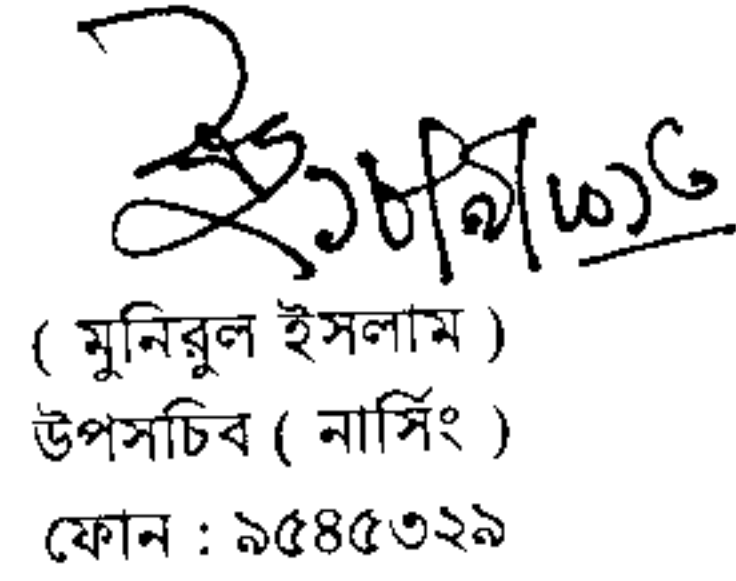 ( মুনিরুল ইসলাম )
উপসচিব ( নার্সিং )
ফোন : ৯৫৪৫৩২৯